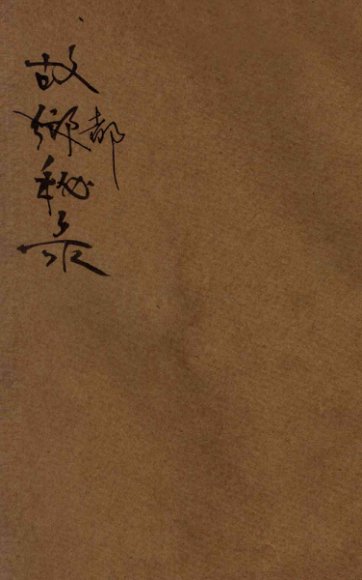 故鄉秘录
都